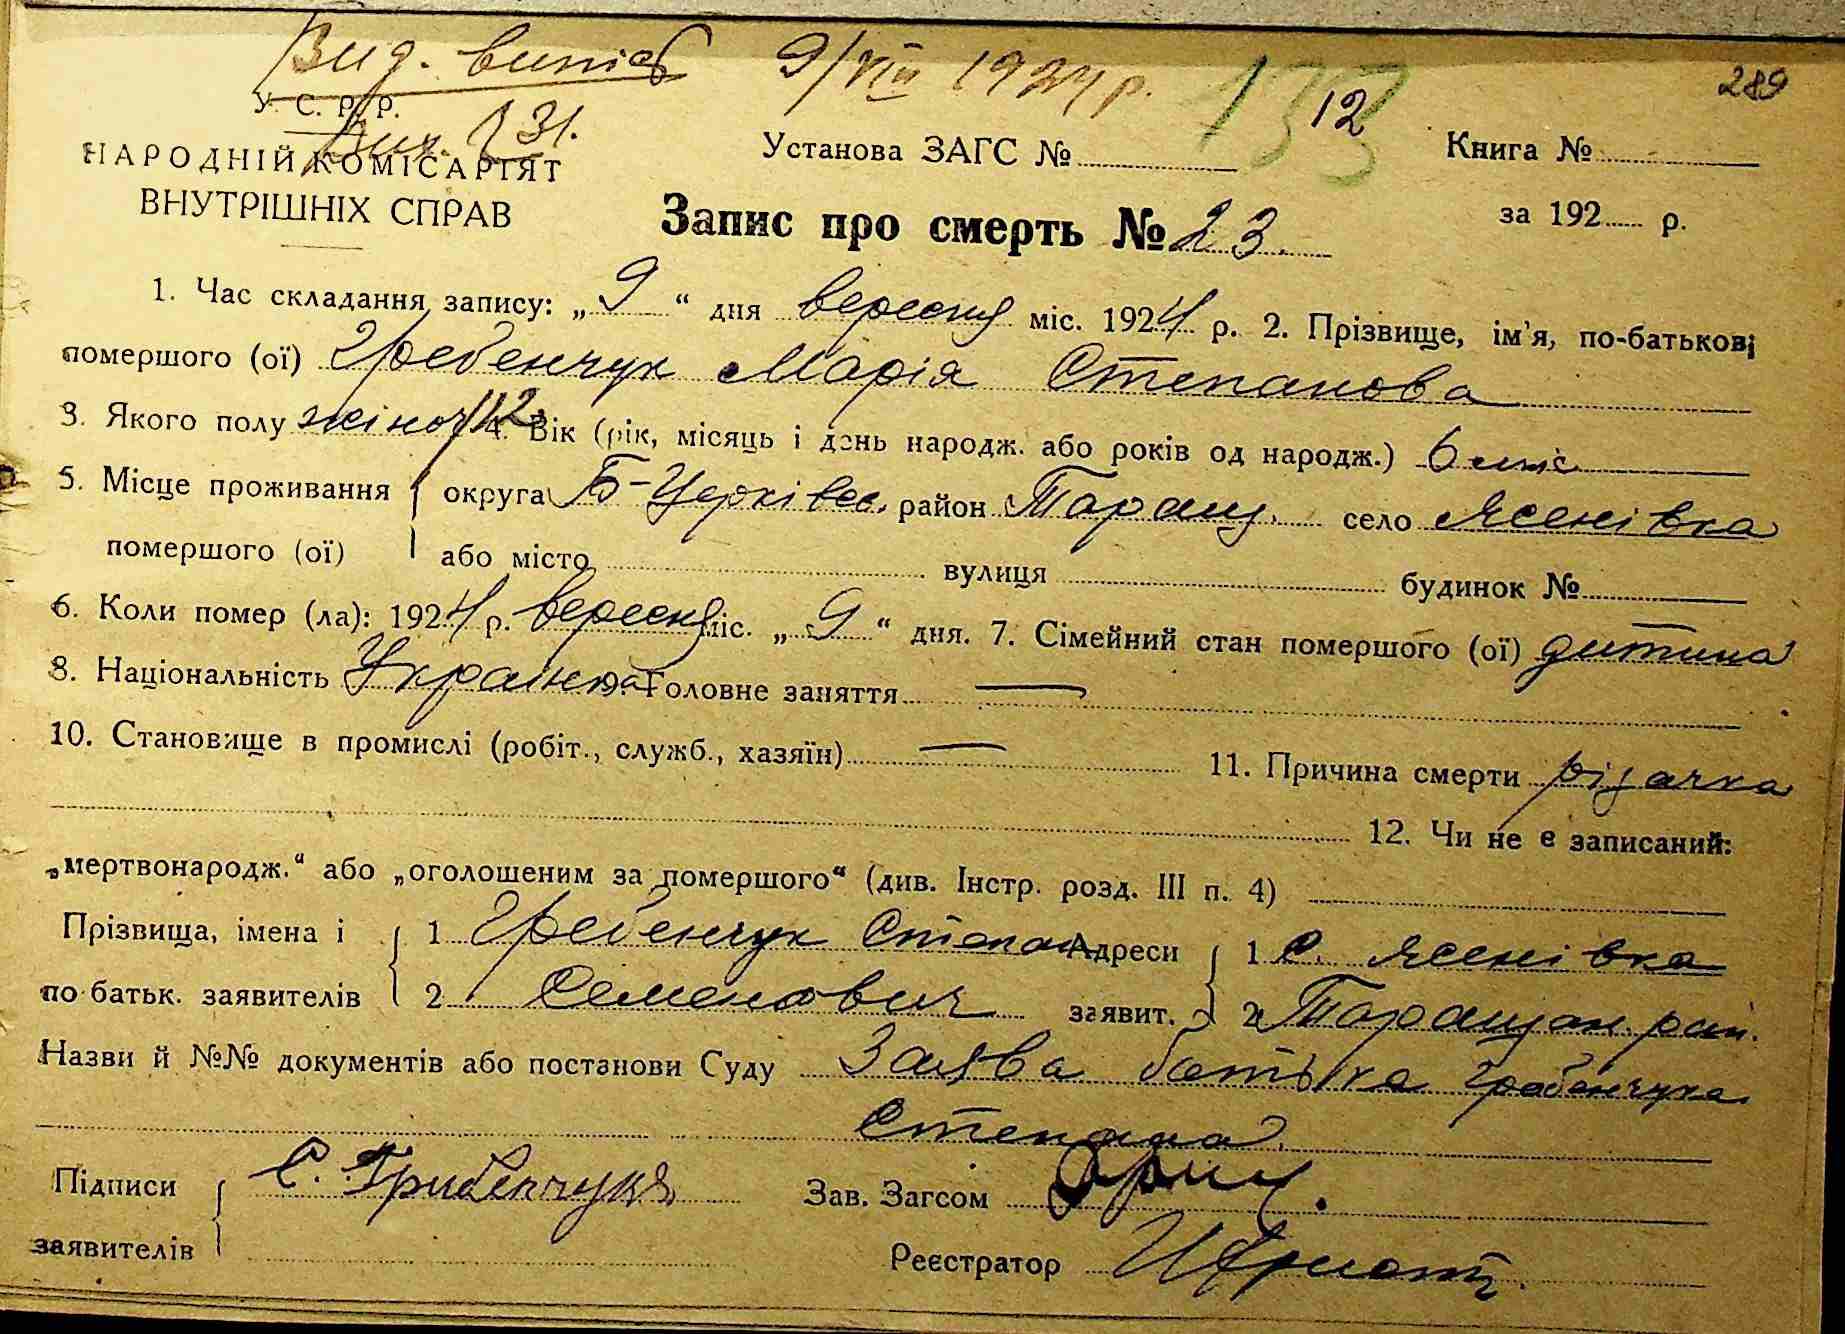 Вид. випис 9/VIII 1924 р. 133 12 289
У. С. Р. Р.
Вих. № 31.
НАРОДНІЙ КОМІСАРІЯТ
ВНУТРІШНІХ СПРАВ
Установа ЗАГС № Книга №
Запис про смерть № 23. за 192 р.
1. Час складання запису: „9“ дня вересня міс. 1924 р. 2. Прізвище, ім'я, по-батькові
помершого (ої) Гребенчук Марія Степанова
3. Якого полу жіноч 12. 4. Вік (рік, місяць і день народж. або років од народж.) 6 міс
5. Місце проживання округа Б-Церківск. район Таращ. село Ясенівка
помершого (ої) або місто вулиця будинок №
6. Коли помер (ла): 1924 р. вересня міс. „9“ дня. 7. Сімейний стан помершого (ої) дитина
8. Національність Українка Головне заняття —
10. Становище в промислі (робіт., служб., хазяїн) — 11. Причина смерти різачка
12. Чи не є записаний:
„мертвонародж.“ або „оголошеним за помершого“ (див. Інстр. розд. III п. 4)
Прізвища, імена і 1 Гребенчук Степан Адреси 1 с. Ясенівка
по батьк. заявителів 2 Семенович заявит. 2 Таращан. рай.
Назви й №№ документів або постанови Суду Заява батька Гребенчука
Степана.
Підписи С. Грибенчука Зав. Загсом
заявителів Реєстратор